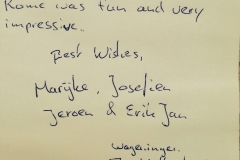 Rome was fun and very
impressive.
Best Wishes,
Marijke, Josefien
Jeroen & Erik Jan
Wageningen